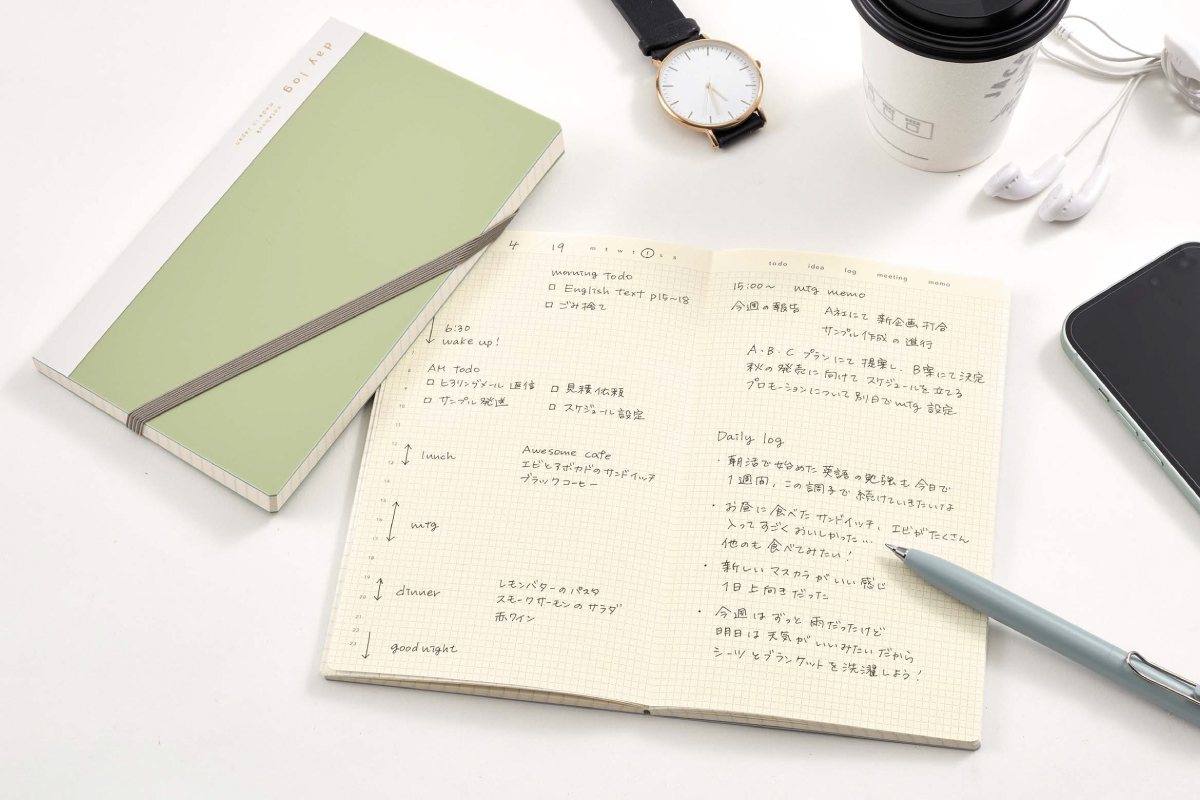 day log
4 19 m t w t f s s
morning todo
□ English text p15~18
□ ごみ捨て
6:30
wake up!
AM todo
□ ヒアリングメール返信 □ 見積依頼
□ サンプル発送 □ スケジュール設定
lunch
Awesome cafe
エビとアボカドのサンドイッチ
ブラックコーヒー
mtg
dinner
レモンバターのパスタ
スモークサーモンのサラダ
赤ワイン
goodnight
todo idea log meeting memo
15:00~ mtg memo
今週の報告 A社にて新企画打合
サンプル作成の進行
A・B・Cプランにて提案し、B案にて決定
秋の発売に向けてスケジュールを立てる
プロモーションについて別日でmtg設定
Daily log
・朝活で始めた英語の勉強も今日で
1週間、この調子で続けていきたいな
・お昼に食べたサンドイッチ、エビがたくさん
入ってすごくおいしかった…
他のも食べてみたい!
・新しいマスカラがいい感じ
1日上向きだった
・今週はずっと雨だったけど
明日は天気がいいみたいだから
シーツとブランケットを洗濯しよう!